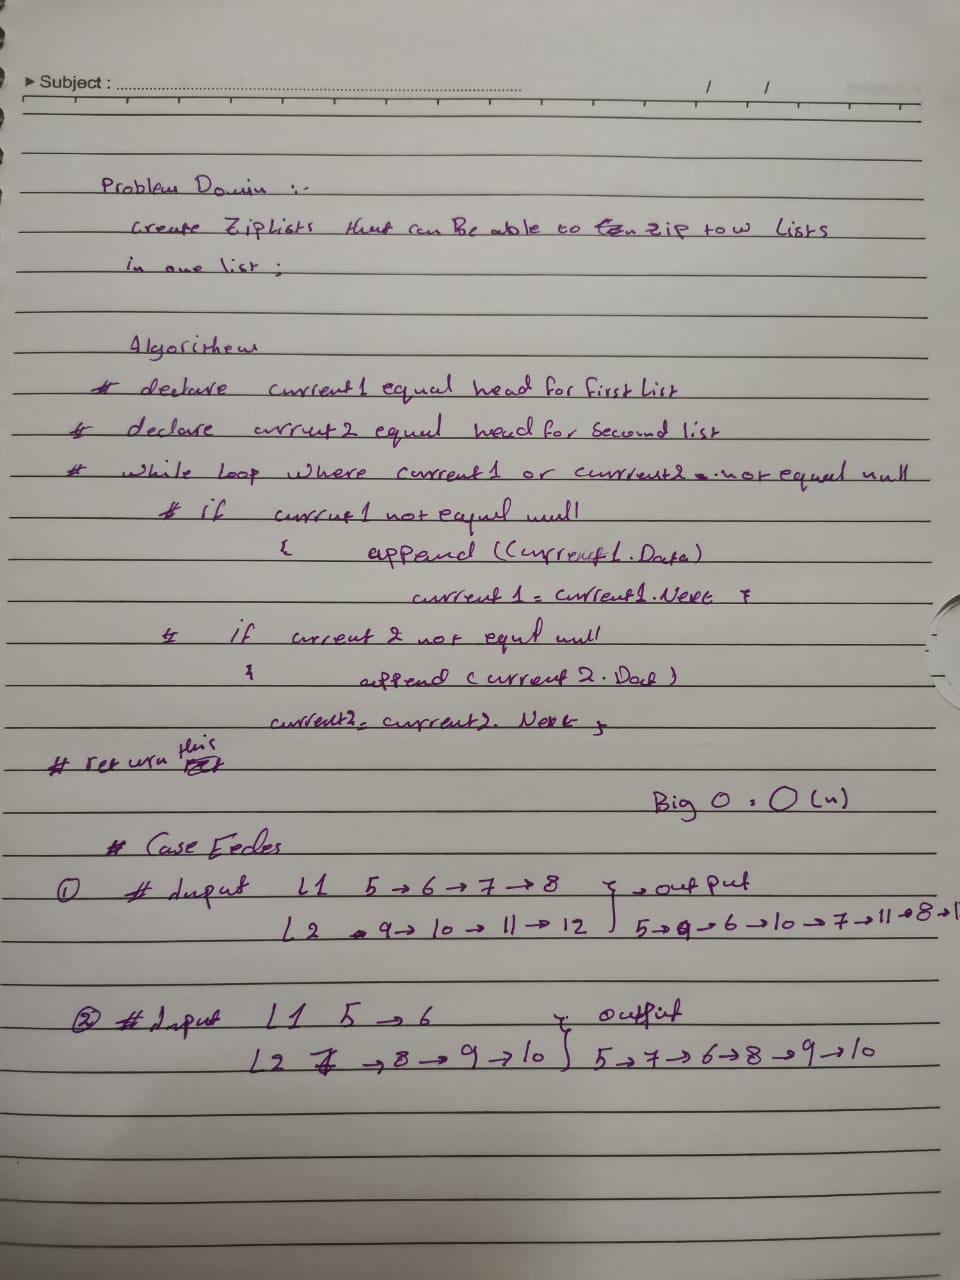 Subject : / /
Problem Domin :-
create ZipLists that can Be able to zip tow Lists
in one list ;
Algorithem
# declare current1 equal head for first List
# declare current2 equal head for Second list
# while loop where current1 or current2 not equal null
# if current1 not equal null
{ append (Current1.Data)
current1 = current1.Next }
# if current 2 not equl null
{ append (current 2.Dat)
current2= current2. Next }
# return this
Big O : O(n)
# Case Eedes
① # Input L1 5 → 6 → 7 → 8 } → out put
L2 → 9 → 10 → 11 → 12 5 → 9 → 6 → 10 → 7 → 11 → 8 → 1
② # Input L1 5 → 6 } output
L2 7 → 8 → 9 → 10 5 → 7 → 6 → 8 → 9 → 10